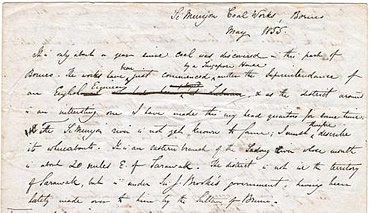 Si Munjon Coal Works, Borneo
May 1855.
It is only about a year since coal was discovered in this part of
Borneo. The works have just commenced by a Singapore House under the Superintendence of
an English Engineer & as the district around
is an interesting one I have made this my head quarters for some time.
As the Si Munjon river is not yet known to fame, I must therefore describe
its whereabouts. It is an eastern branch of the Sadong river whose mouth
is about 20 miles E of Sarawak. The district is not in the territory
of Sarawak, but is under Sir J. Brooke's government, having been
lately made over to him by the Sultan of Bruni.